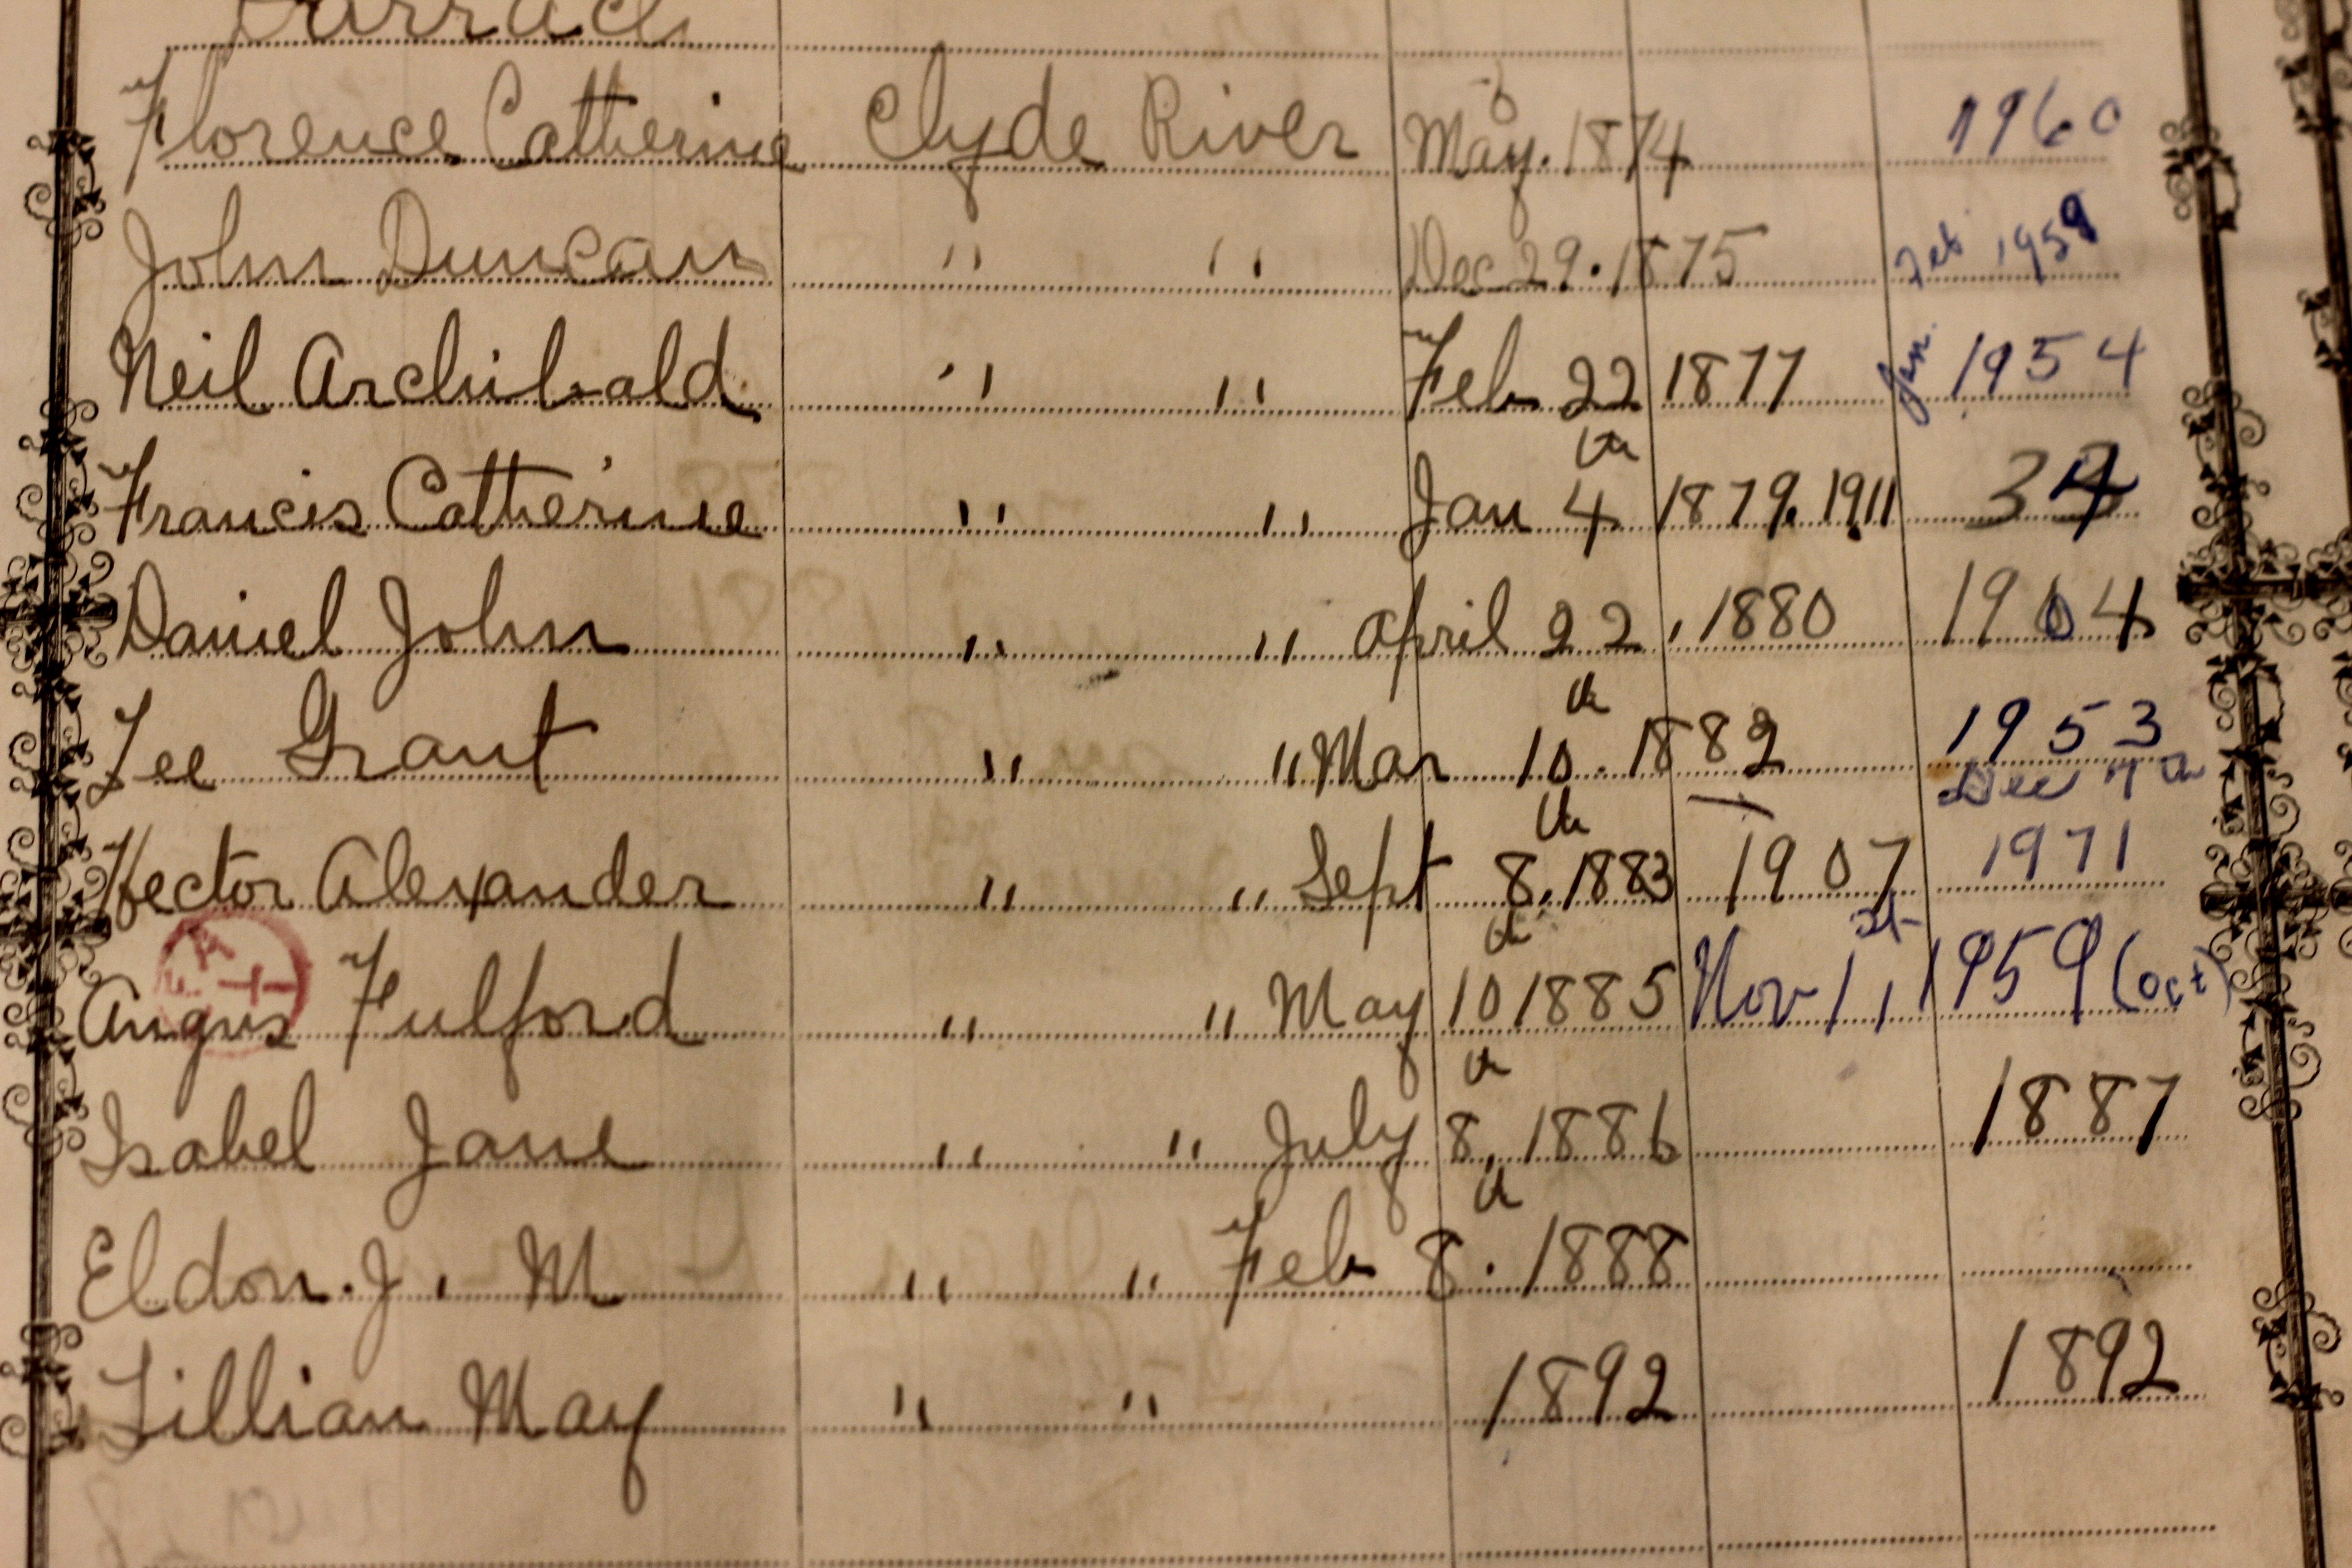 Darrach
Florence Catherine Clyde River May. 1874 1960
John Duncan " " Dec 29. 1875 Feb 1959
Neil Archibald " " Feb 22 1877 Jan. 1954
Francis Catherine " " Jan 4th 1879. 1911 34
Daniel John " " April 22, 1880 1904
Lee Grant " " Mar 10th. 1882 1953
Dec 7th
Hector Alexander " " Sept 8th, 1883 1907 1971
Angus Fulford " " May 10th 1885 Nov 1st, 1959 (Oct)
Isabel Jane " " July 8th, 1886 1887
Eldon. J. M " " Feb 8th. 1888
Lillian May " " 1892 1892